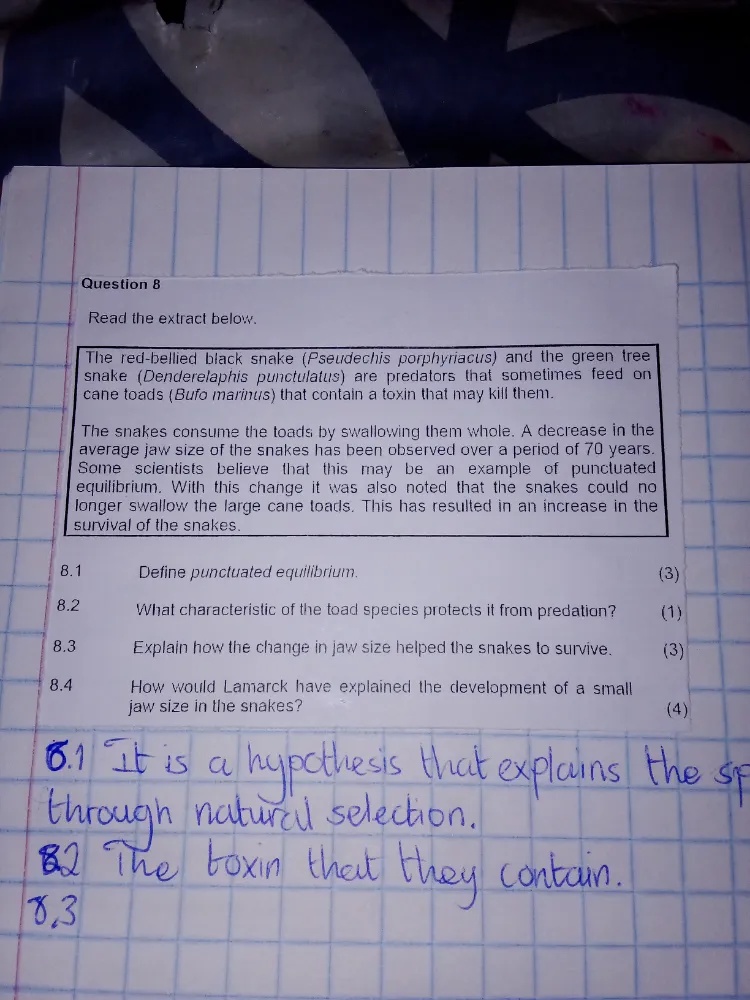 Question 8
Read the extract below.
The red-bellied black snake (Pseudechis porphyriacus) and the green tree
snake (Denderelaphis punctulatus) are predators that sometimes feed on
cane toads (Bufo marinus) that contain a toxin that may kill them.
The snakes consume the toads by swallowing them whole. A decrease in the
average jaw size of the snakes has been observed over a period of 70 years.
Some scientists believe that this may be an example of punctuated
equilibrium. With this change it was also noted that the snakes could no
longer swallow the large cane toads. This has resulted in an increase in the
survival of the snakes.
8.1 Define punctuated equilibrium. (3)
8.2 What characteristic of the toad species protects it from predation? (1)
8.3 Explain how the change in jaw size helped the snakes to survive. (3)
8.4 How would Lamarck have explained the development of a small
jaw size in the snakes? (4)
8.1 It is a hypothesis that explains the
through natural selection.
8.2 The toxin that they contain.
8.3